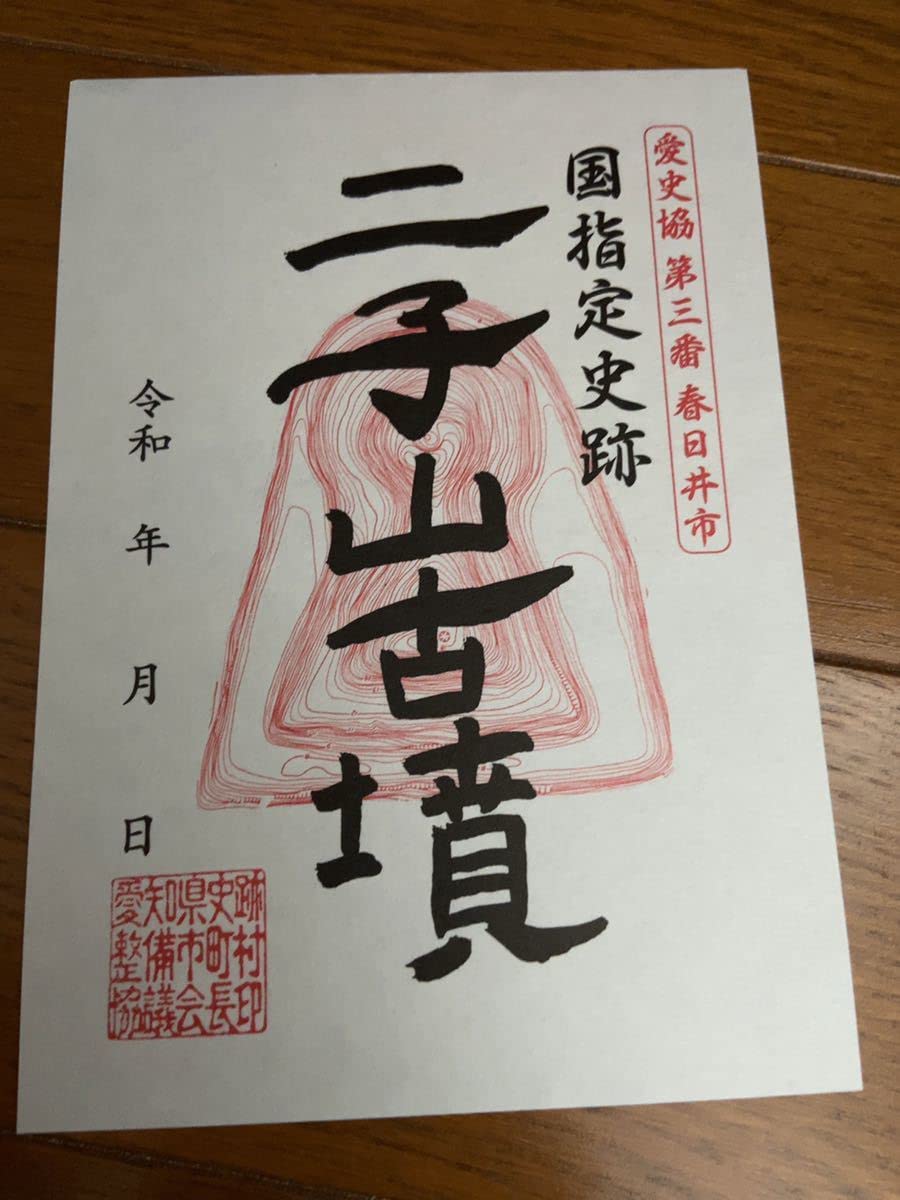 愛史協 第三番 春日井市
国指定史跡
二子山古墳
令和 年 月 日
愛知県史跡
整備市町村
協議会長印